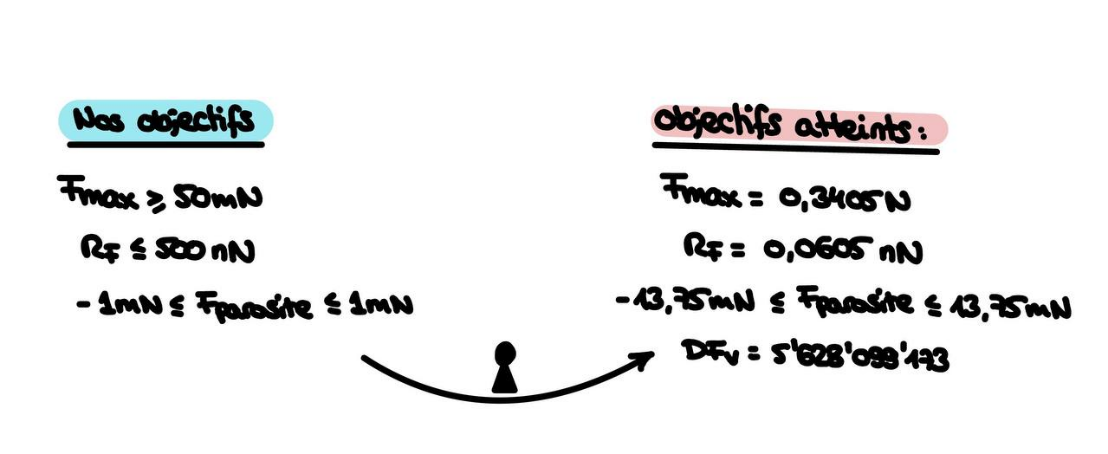 Nos objectifs
Fmax ≥ 50mN
RF ≤ 500 nN
-1mN ≤ Fparasite ≤ 1mN
objectifs atteints:
Fmax = 0,3405N
RF = 0,0605 nN
-13,75mN ≤ Fparasite ≤ 13,75mN
DFv = 5'628'099'173